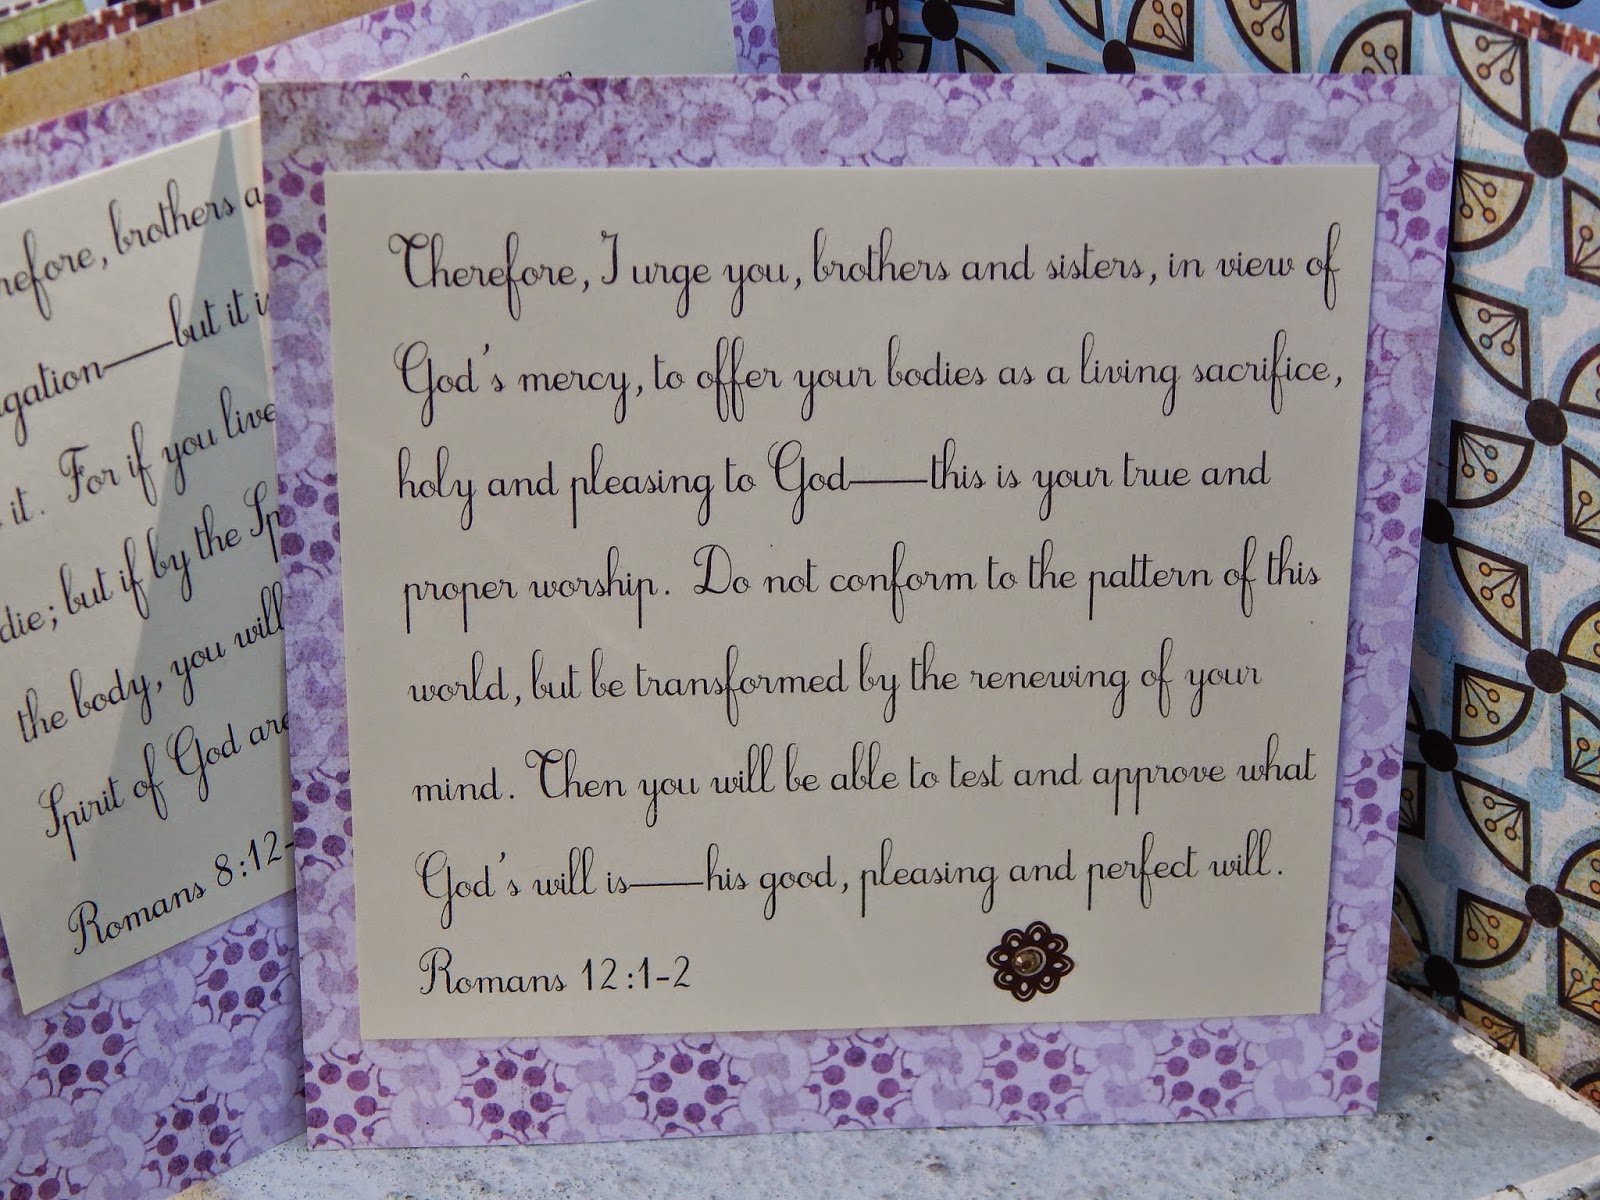 brothers
but it
it. For if you live
die; but if by the
the body, you will
Spirit of God are
Romans 8:12-
Therefore, I urge you, brothers and sisters, in view of
God's mercy, to offer your bodies as a living sacrifice,
holy and pleasing to God—this is your true and
proper worship. Do not conform to the pattern of this
world, but be transformed by the renewing of your
mind. Then you will be able to test and approve what
God's will is—his good, pleasing and perfect will.
Romans 12:1-2